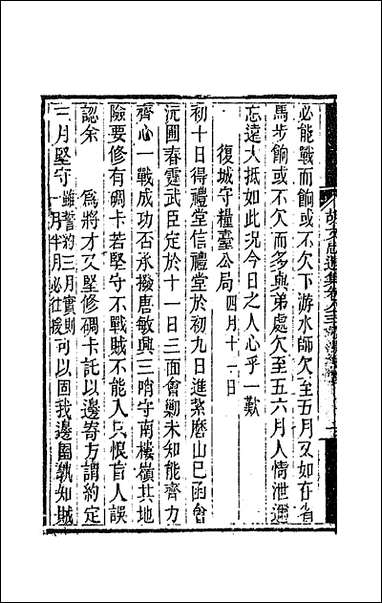 必能戰而餉或不欠下游水師欠至五月又如在省
馬步餉或不欠而多與弟處欠至五六月人情泄邇
忘遠大抵如此況今日之人心乎一歎
復城守糧臺公局 四月十一日
初十日得禮堂信禮堂於初九日進紮磨山已函會
沅圃春霆武臣定於十一日三面會勦未知能齊力
齊心一戰成功否承撥唐敏興三哨守南樓嶺其地
險要修有碉卡若堅守不戰賊不能入只恨盲人誤
認余 爲將才又堅修碉卡託以邊寄方謂約定
三月堅守 雖誓約三月實則一月半月必往援 可以固我邊圉孰知賊
胡文忠遺集卷